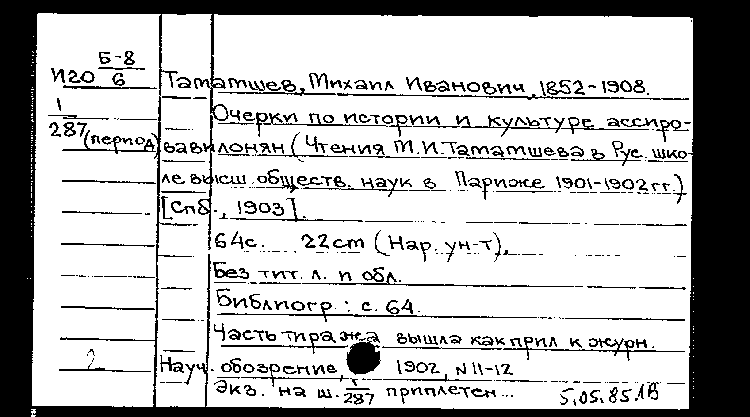 Б-8
И20 6
Таматшев, Михаил Иванович, 1852-1908.
1
287 (период)
Очерки по истории и культуре ассиро-
вавилонян (Чтения М.И.Таматшева в Рус. шко-
ле высш. обществ. наук в Париже 1901-1902 гг.)
[Спб., 1903].
64с. 22cm (Нар. ун-т),
Без тит. л. и обл.
Библиогр: с. 64.
Часть тиража вышла как прил к журн.
2
Науч. обозрение, 1902, №11-12
Экз. на ш. 1/287 приплетен...
5.05.85 ЛВ